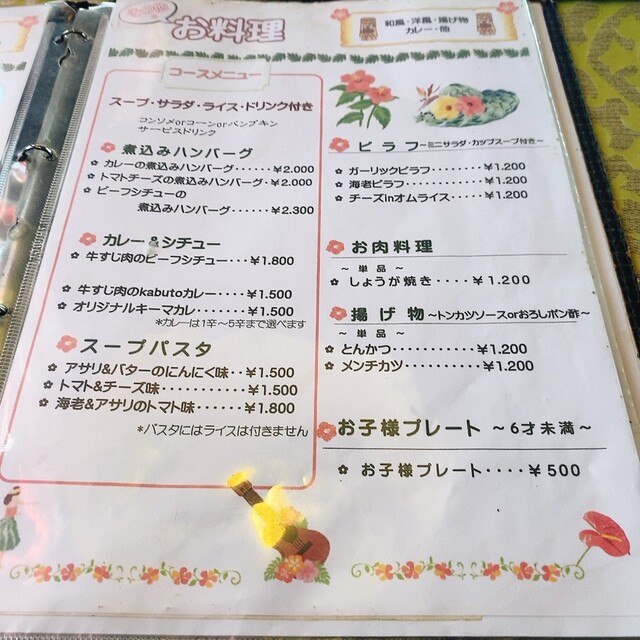 お料理
和風・洋風・揚げ物
カレー・他
コースメニュー
スープ・サラダ・ライス・ドリンク付き
コンソメorコーンorパンプキン
サービスドリンク
煮込みハンバーグ
カレーの煮込みハンバーグ‥‥‥¥2.000
トマトチーズの煮込みハンバーグ・¥2.000
ビーフシチューの
煮込みハンバーグ‥‥‥¥2.300
カレー&シチュー
牛すじ肉のビーフシチュー‥‥¥1.800
牛すじ肉のkabutoカレー‥‥¥1.500
オリジナルキーマカレ‥‥‥‥¥1.500
*カレーは1辛~5辛まで選べます
スープパスタ
アサリ&バターのにんにく味‥¥1.500
トマト&チーズ味‥‥‥‥‥¥1.500
海老&アサリのトマト味‥‥‥¥1.800
*パスタにはライスは付きません
ピラフ~ミニサラダ・カップスープ付き~
ガーリックピラフ‥‥‥‥¥1.200
海老ピラフ‥‥‥‥‥‥¥1.200
チーズinオムライス‥‥‥¥1.200
お肉料理
~単品~
しょうが焼き‥‥¥1.200
揚げ物~トンカツソースorおろしポン酢~
~単品~
とんかつ‥‥‥‥‥¥1.200
メンチカツ‥‥‥‥‥¥1.200
お子様プレート ~6才未満~
お子様プレート‥‥¥500